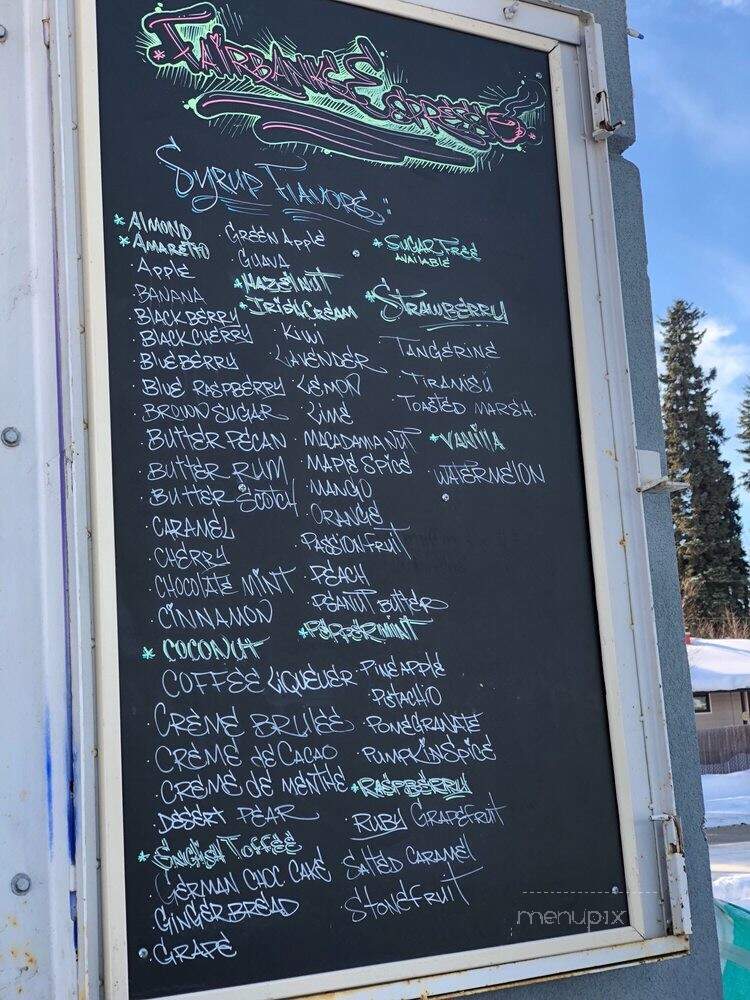 * FAIRBANKS ESPRESSO
SYRUP FLAVORS:
* ALMOND
* AMARETTO
· APPLE
· BANANA
· BLACKBERRY
· BLACK CHERRY
· BLUEBERRY
· BLUE RASPBERRY
· BROWN SUGAR
· BUTTER PECAN
· BUTTER RUM
· BUTTER SCOTCH
· CARAMEL
· CHERRY
· CHOCOLATE MINT
· CINNAMON
* COCONUT
COFFEE LIQUEUER
· CREME BRULEE
· CREME de CACAO
· CREME de MENTHE
· DESSERT PEAR
* ENGLISH TOFFEE
· GERMAN CHOC CAKE
· GINGERBREAD
· GRAPE
· GREEN APPLE
· GUAVA
* HAZELNUT
* IRISH CREAM
· KIWI
· LAVENDER
· LEMON
· LIME
· MACADAMIA NUT
· MAPLE SPICE
· MANGO
· ORANGE
· PASSIONFRUIT
· PEACH
· PEANUT BUTTER
* PEPPERMINT
· PINEAPPLE
· PISTACHIO
· POMEGRANATE
· PUMPKIN SPICE
* RASPBERRY
· RUBY GRAPEFRUIT
· SALTED CARAMEL
· STONEFRUIT
* SUGAR FREE
AVAILABLE
* STRAWBERRY
· TANGERINE
· TIRAMISU
· TOASTED MARSH.
* VANILLA
· WATERMELON
menupix